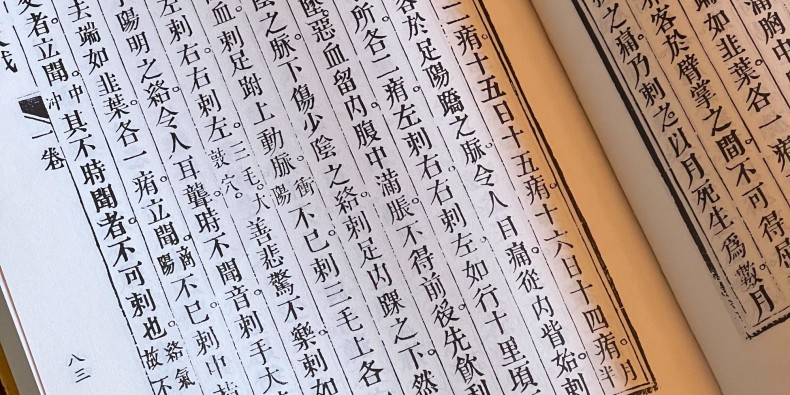 滿胸中
端如韭葉各一痏
客於臂掌之間。不可得
之痛。乃刺之。以月死生爲數。月
二痏。十五日十五痏。十六日十四痏。月半
客於足陽蹻之脈。令人目痛。從內眥始。刺
所各二痏。左刺右。右刺左。如行十里頃
墜。惡血留內。腹中滿脹。不得前後。先飲利
之脈。下傷少陰之絡。刺足內踝之下。然
血。刺足跗上動脈。衝陽不已。刺三毛上各
刺右。右刺左。三毛。大敦穴。善悲驚不樂。刺如
陽明之絡。令人耳聾。時不聞音。刺手大
去端如韭葉各一痏。立聞。商陽不已。刺中
者。立聞。中衝其不時聞者。不可刺也。絡氣故不
一卷
八三